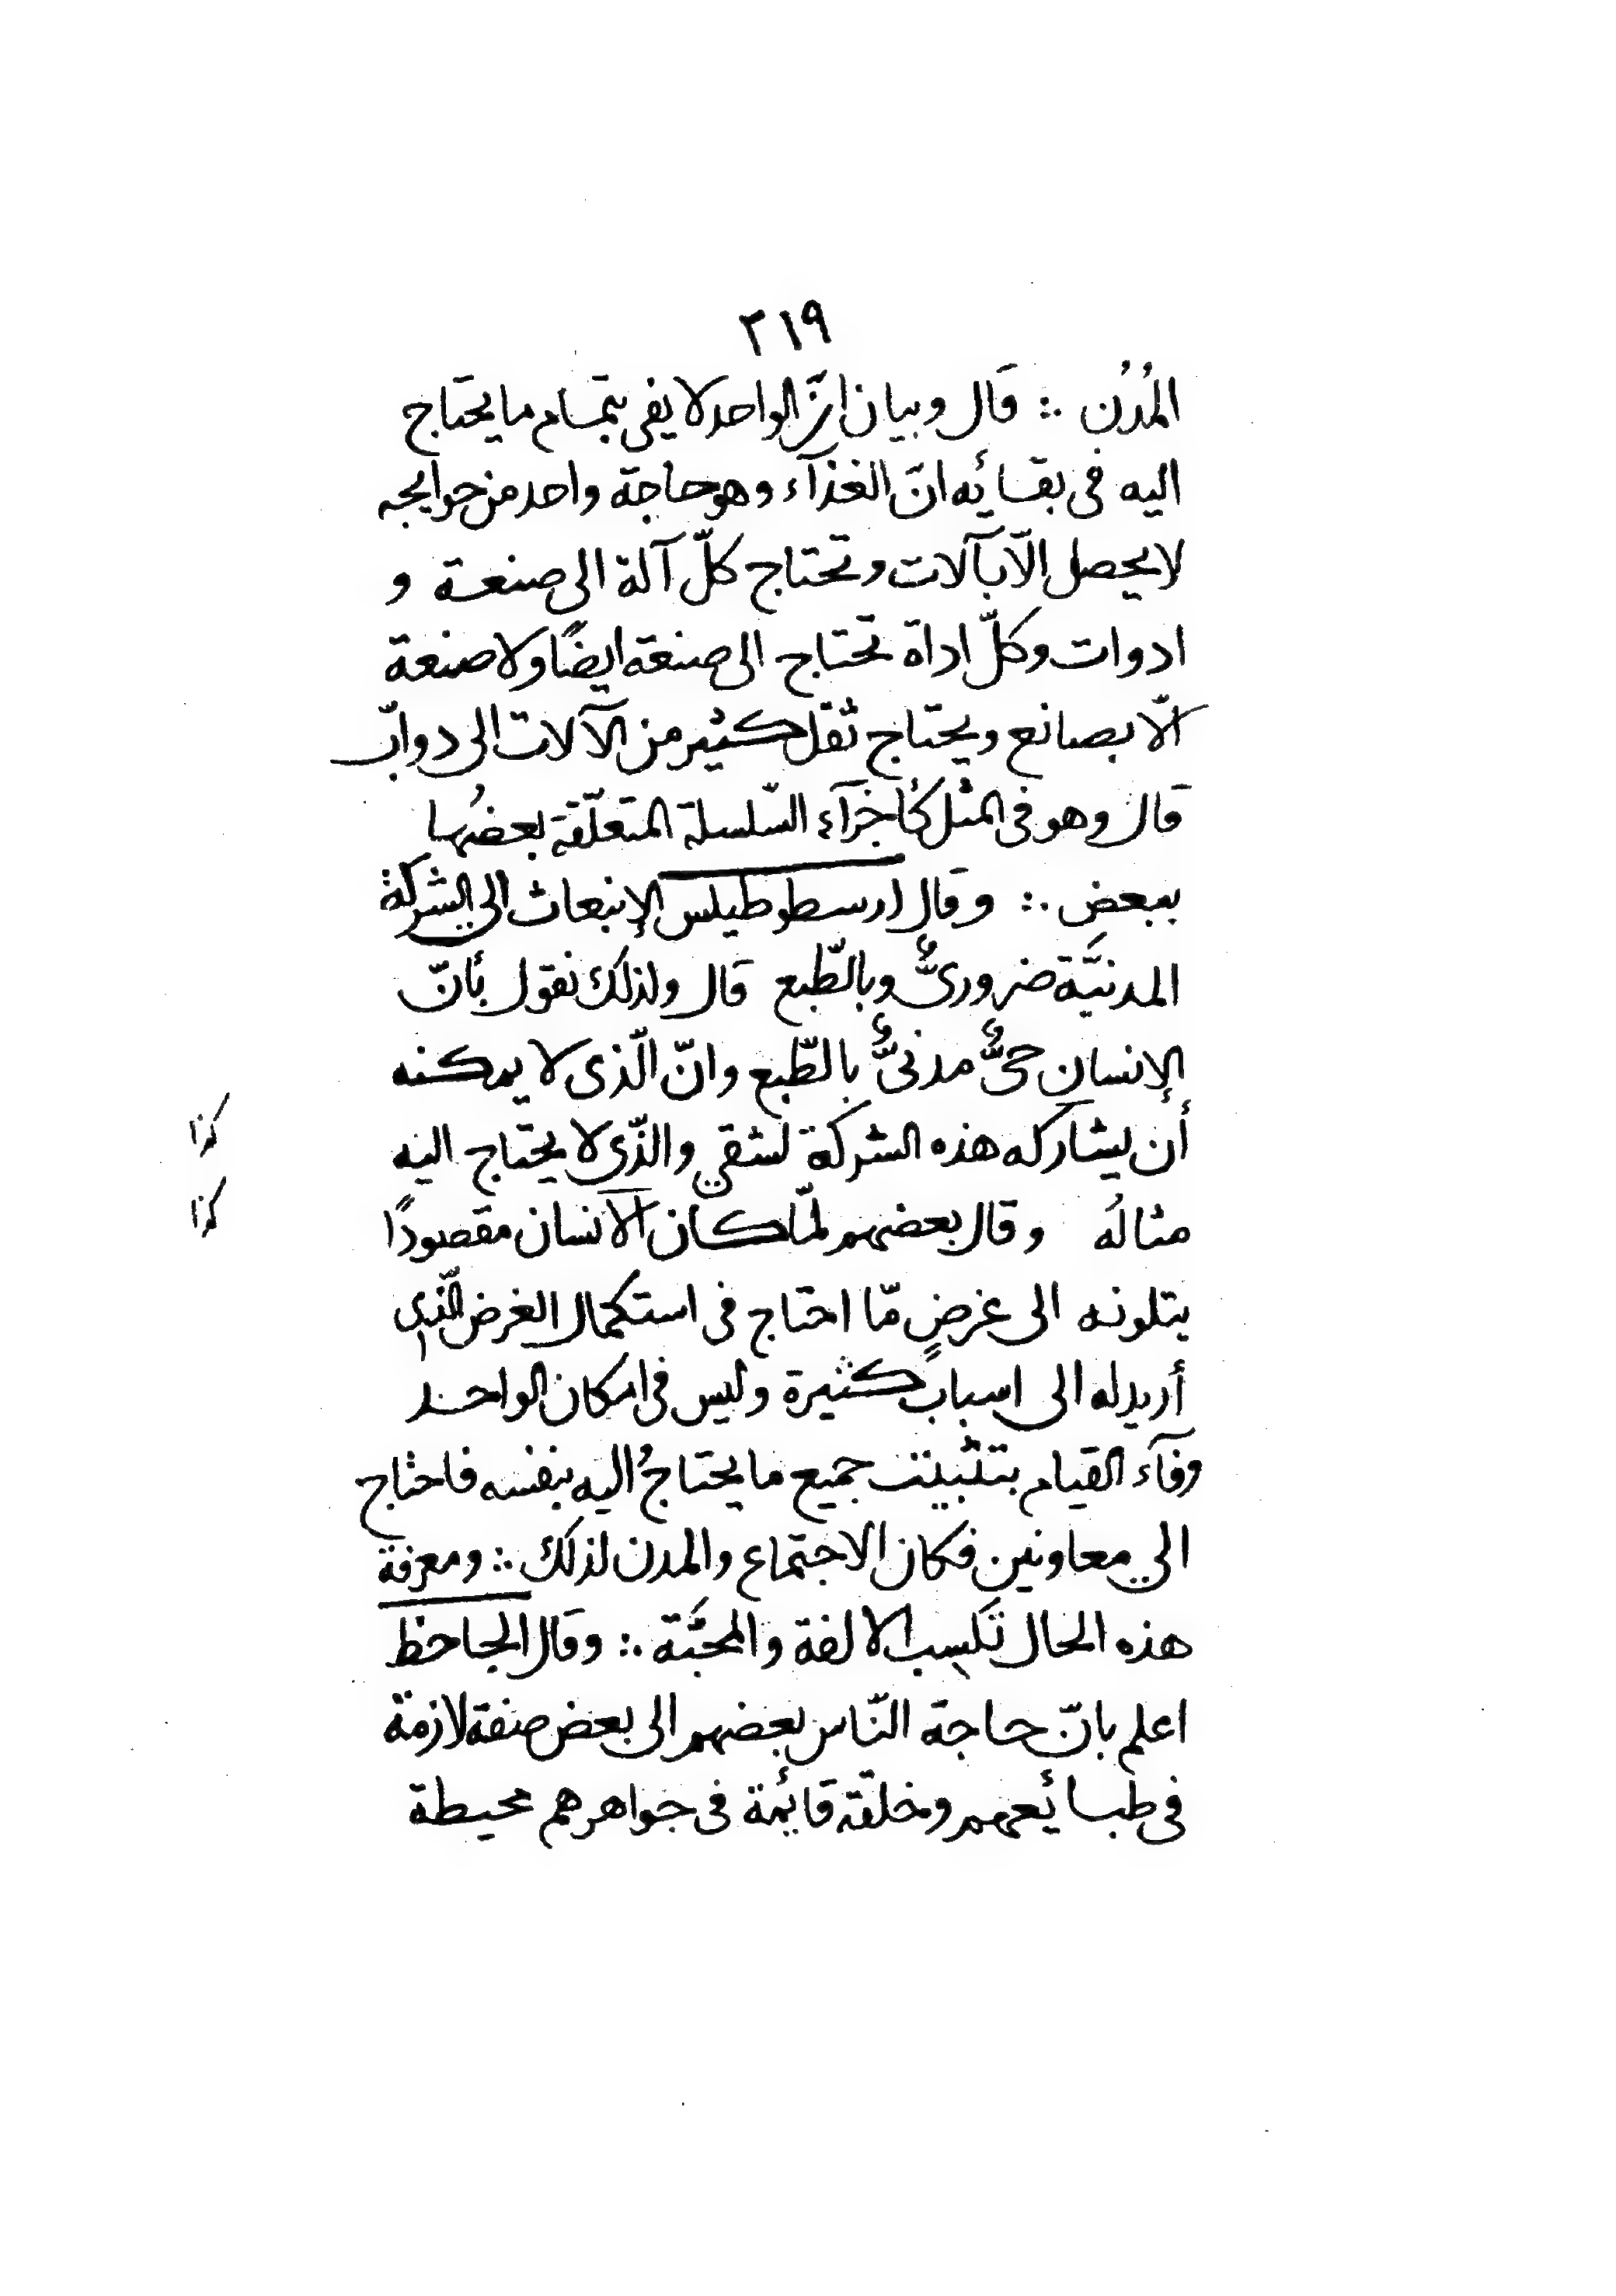 ٢١٩
المُدُن ∴ قَال وبيان انّ الواحد لا يفى بتمام ما يحتاج
اليه فى بقائه انّ الغذآء وهو حاجة واحد من حوايجه
لا يحصل الّا بآلات وتحتاج كلّ آلة الى صنعة و
ادوات وكلّ اداة تحتاج الى صنعة ايضًا ولا صنعة
الّا بصانع ويحتاج ثقل كثير من الآلات الى دوابّ
قال وهو فى المثل كأجزآء السّلسلة المتعلّقة بعضُها
ببعض ∴ وقال ارسطوطيلس الإنبعاث الى الشركة
المدنيَّة ضرورىٌّ وبالطّبع قال ولذلك نقول بأنّ
الإنسان حىٌّ مدنىٌّ بالطّبع وانّ الّذى لا يمكنه
أن يشاركه هذه الشركة لشقي والذّى لا يحتاج اليه
كذا
مثالُه وقال بعضهم لمّا كان الانسان مقصودًا
كذا
يتلونه الى غرضٍ مّا احتاج فى استكمال الغرض الّذى
أريد له الى اسباب كثيرة وليس فى امكان الواحد
وفآء القيام بتثبيت جميع ما يحتاجُ اليه بنفسه فاحتاج
الي معاونين فكان الاجتماع والمدن لذلك ∴ ومعرفة
هذه الحال تكسب الالفة والمحبَّة ∴ وقال الجاحظ
اعلم بانّ حاجة النّاس بعضهم الى بعض صفة لازمة
فى طبائعهم وخلقة قائمة فى جواهرهم محيطة